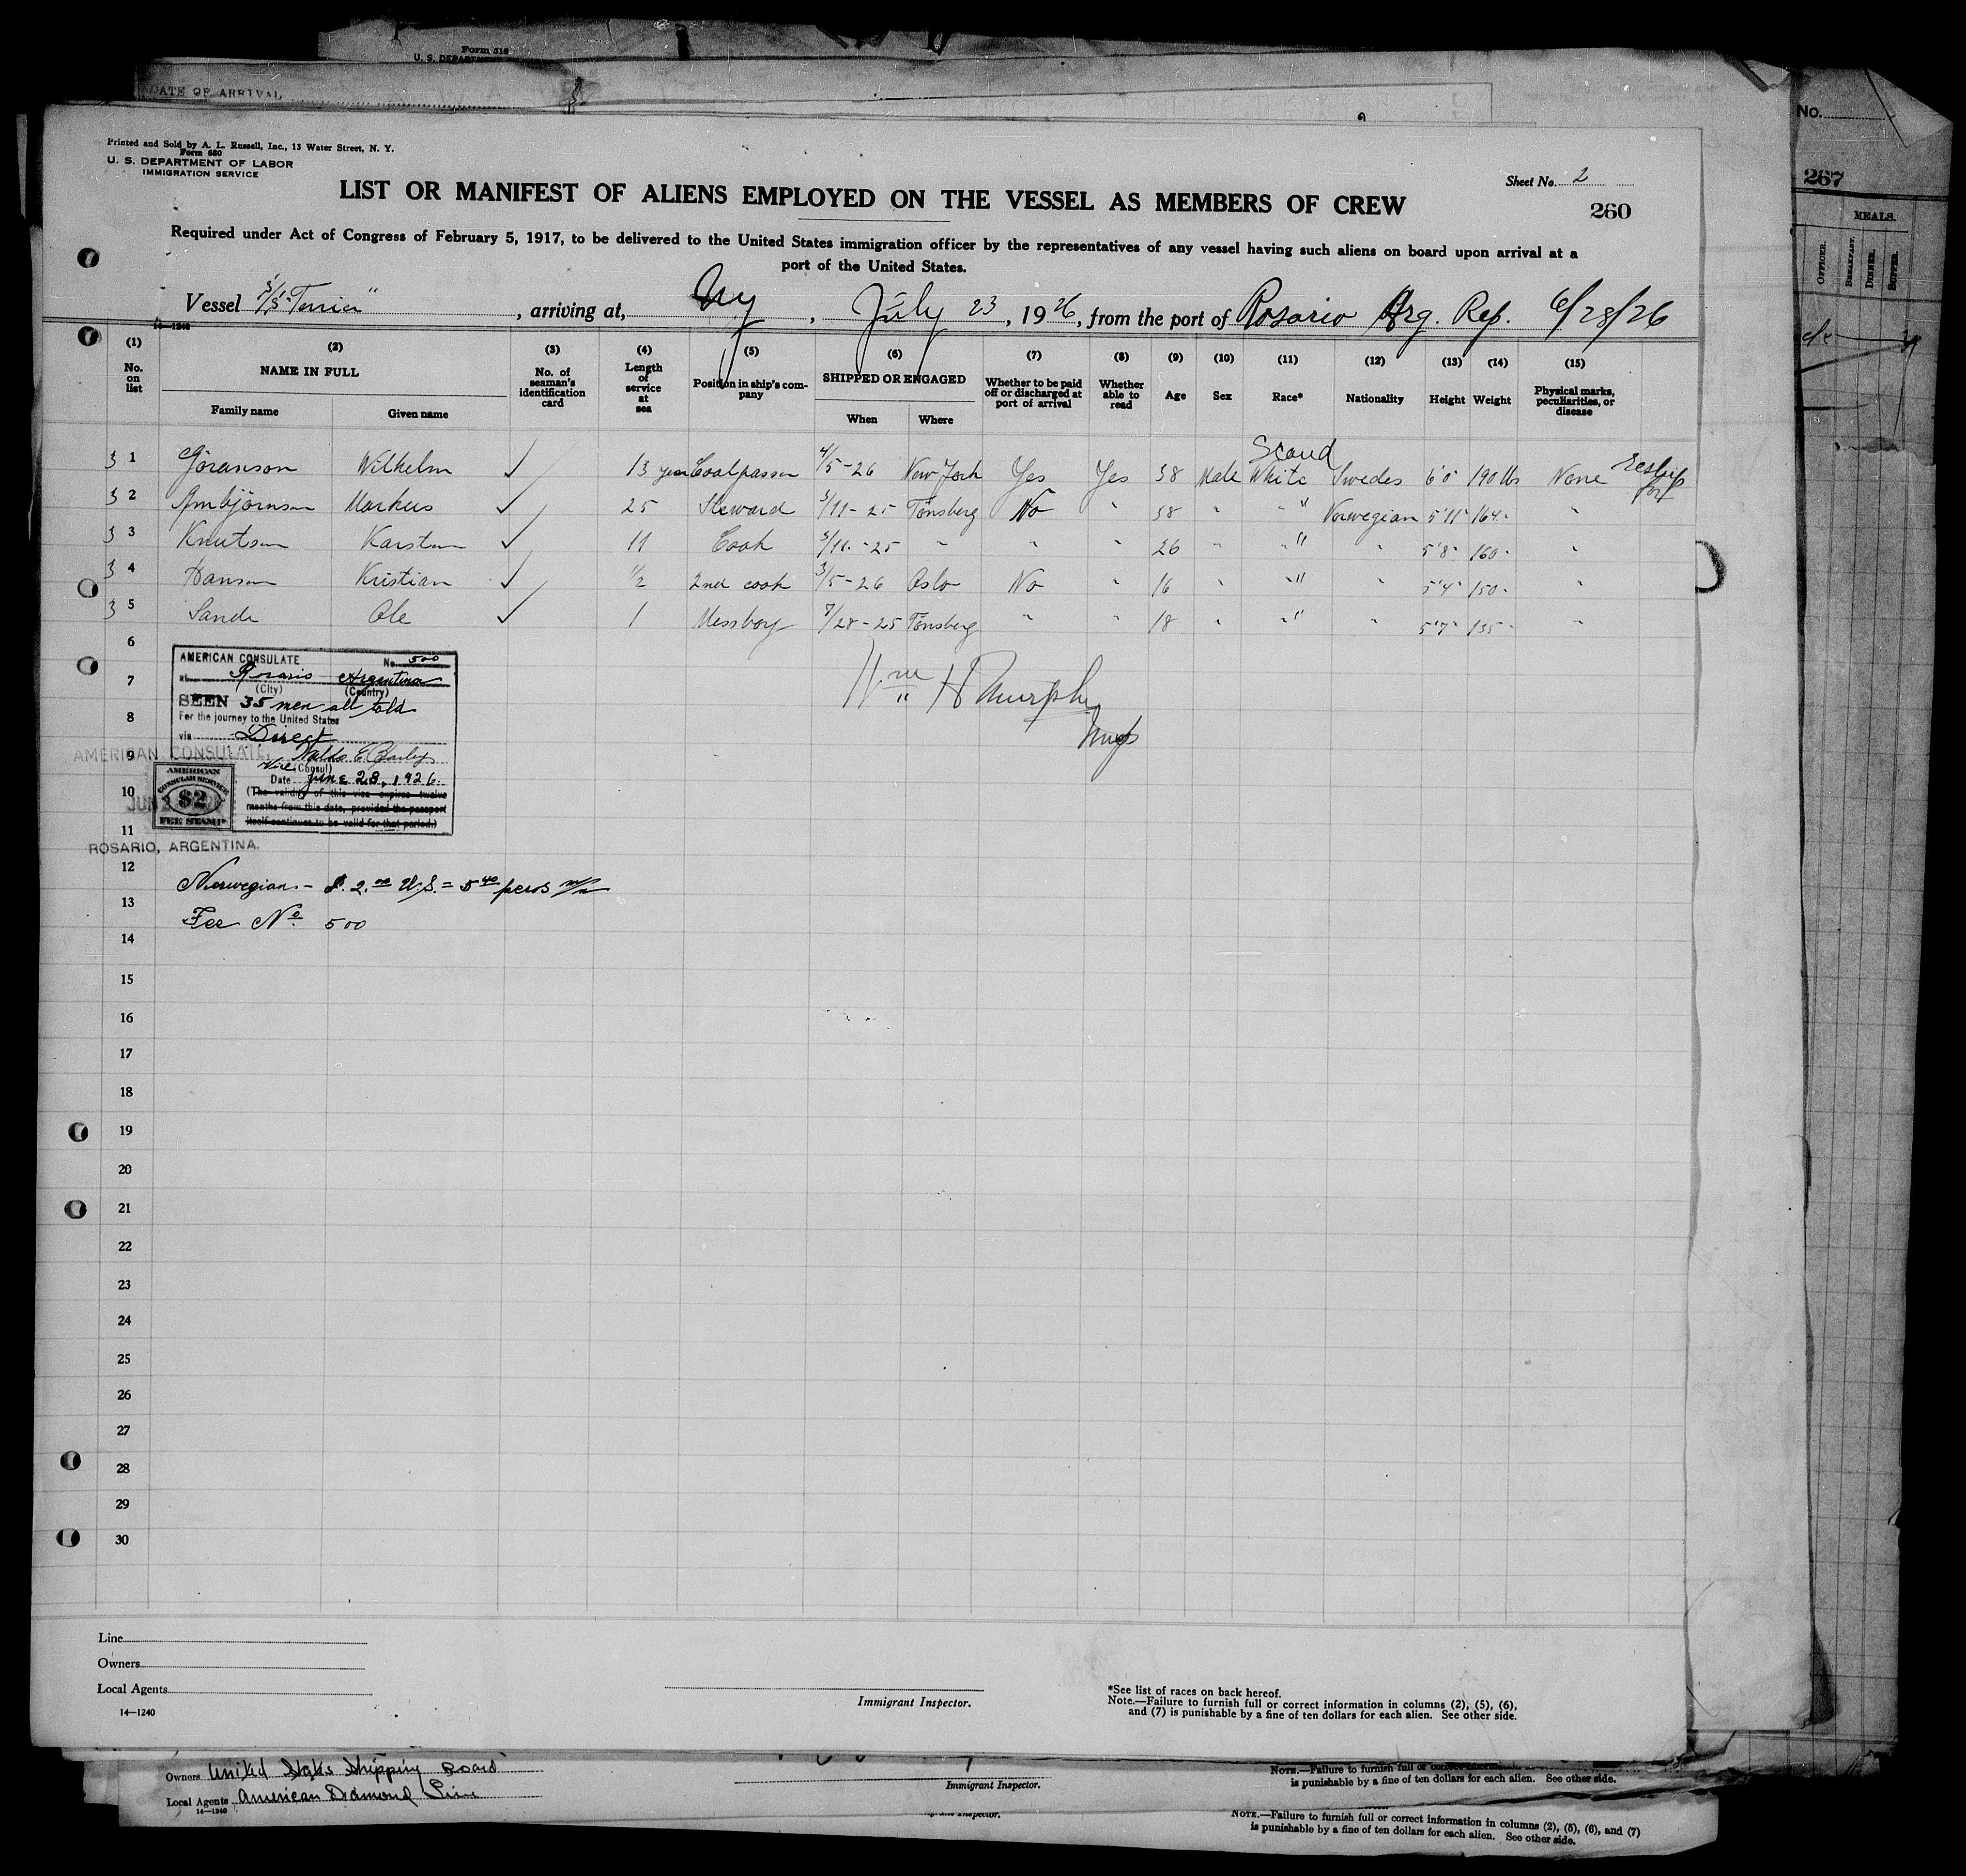 Form 316
U. S. DEPARTMENT
DATE OF ARRIVAL
No.
267
MEALS.
OFFICER. BREAKFAST. DINNER. SUPPER.
Printed and Sold by A. L. Russell, Inc., 13 Water Street, N. Y.
Form 680
U. S. DEPARTMENT OF LABOR
IMMIGRATION SERVICE
Sheet No. 2
LIST OR MANIFEST OF ALIENS EMPLOYED ON THE VESSEL AS MEMBERS OF CREW
260
Required under Act of Congress of February 5, 1917, to be delivered to the United States immigration officer by the representatives of any vessel having such aliens on board upon arrival at a
port of the United States.
Vessel S/S "Terrier", arriving at, Ny, July 23, 1926, from the port of Rosario Arg. Rep. 6/28/26
14—1240
(1) (2) (3) (4) (5) (6) (7) (8) (9) (10) (11) (12) (13) (14) (15)
No. on list NAME IN FULL No. of seaman's identification card Length of service at sea Position in ship's company SHIPPED OR ENGAGED Whether to be paid off or discharged at port of arrival Whether able to read Age Sex Race* Nationality Height Weight Physical marks, peculiarities, or disease
Family name Given name When Where
Scand
3 1 Göranson Wilhelm ✓ 13 years Coalpasser 4/5-26 New York Yes Yes 38 Male White Swedes 6'0 190 lbs None
3 2 Arnbjörnsen Markus ✓ 25 Steward 3/11-25 Tönsberg No " 58 " " " Norwegian 5'11" 164 "
3 3 Knutsen Karsten ✓ 11 Cook 3/11-25 " " " 26 " " " " 5'8" 160 "
3 4 Hansen Kristian ✓ 1/2 2nd cook 3/5-26 Oslo No " 16 " " " " 5'4" 150 "
3 5 Sande Ole ✓ 1 Messboy 7/28-25 Tönsberg " " 18 " " " " 5'7" 135 "
6
AMERICAN CONSULATE No. 500
at Rosario Argentina
(City) (Country)
7
SEEN 35 men all told
Wm H Murphy
For the journey to the United States
8
via Direct
Insp
AMERICAN CONSULATE,
9
Vice (Consul)
Date June 28, 1926.
AMERICAN CONSULAR SERVICE $2 FEE STAMP
10
(The validity of this visa expires twelve
months from this date, provided the passport
itself continues to be valid for that period.)
11
ROSARIO, ARGENTINA.
12
Norwegian - $. 2.00 U.S. = 5 40 pesos m/n
13
Fee No 500
14
15
16
17
18
19
20
21
22
23
24
25
26
27
28
29
30
Line
Owners
Local Agents
14—1240
Immigrant Inspector.
*See list of races on back hereof.
Note.—Failure to furnish full or correct information in columns (2), (5), (6),
and (7) is punishable by a fine of ten dollars for each alien. See other side.
Owners United States Shipping Board
Local Agents American Diamond Line
14—1240
Immigrant Inspector.
NOTE.—Failure to furnish full or correct
is punishable by a fine of ten dollars for each alien. See other side.
NOTE.—Failure to furnish full or correct information in columns (2), (5), (6), and (7)
is punishable by a fine of ten dollars for each alien. See other side.